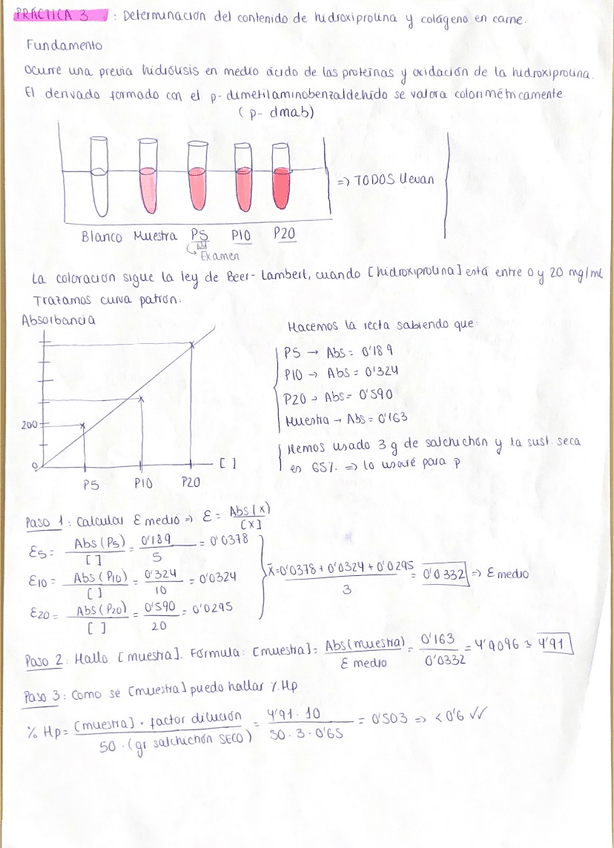 PRÁCTICA 3 : Determinación del contenido de hidroxiprolina y colágeno en carne.
Fundamento
Ocurre una previa hidrólisis en medio ácido de las proteínas y oxidación de la hidroxiprolina.
El derivado formado con el p-dimetilaminobenzaldehído se valora colorimétricamente
(p-dmab)
=> TODOS llevan
Blanco Muestra P5 P10 P20
Examen
La coloración sigue la ley de Beer-Lambert, cuando [hidroxiprolina] está entre 0 y 20 mg/ml
Trazamos curva patrón.
Absorbancia
200
0
P5 P10 P20
[ ]
Hacemos la recta sabiendo que:
P5 → Abs = 0'189
P10 → Abs = 0'324
P20 → Abs = 0'590
Muestra → Abs = 0'163
Hemos usado 3 g de salchichón y la sust. seca
es 65%. => lo usaré para p
Paso 1: Calcular ε medio => ε = Abs(x) / [x]
ε5 = Abs(P5) / [ ] = 0'189 / 5 = 0'0378
ε10 = Abs(P10) / [ ] = 0'324 / 10 = 0'0324
ε20 = Abs(P20) / [ ] = 0'590 / 20 = 0'0295
x̄ = 0'0378 + 0'0324 + 0'0295 / 3 = 0'0332 => ε medio
Paso 2: Hallo [muestra]. Fórmula: [muestra] = Abs(muestra) / ε medio = 0'163 / 0'0332 = 4'9096 ≈ 4'91
Paso 3: Como sé [muestra] puedo hallar % Hp
% Hp = [muestra] · factor dilución / 50 · (gr salchichón SECO) = 4'91 · 10 / 50 · 3 · 0'65 = 0'503 => < 0'6 ✓✓